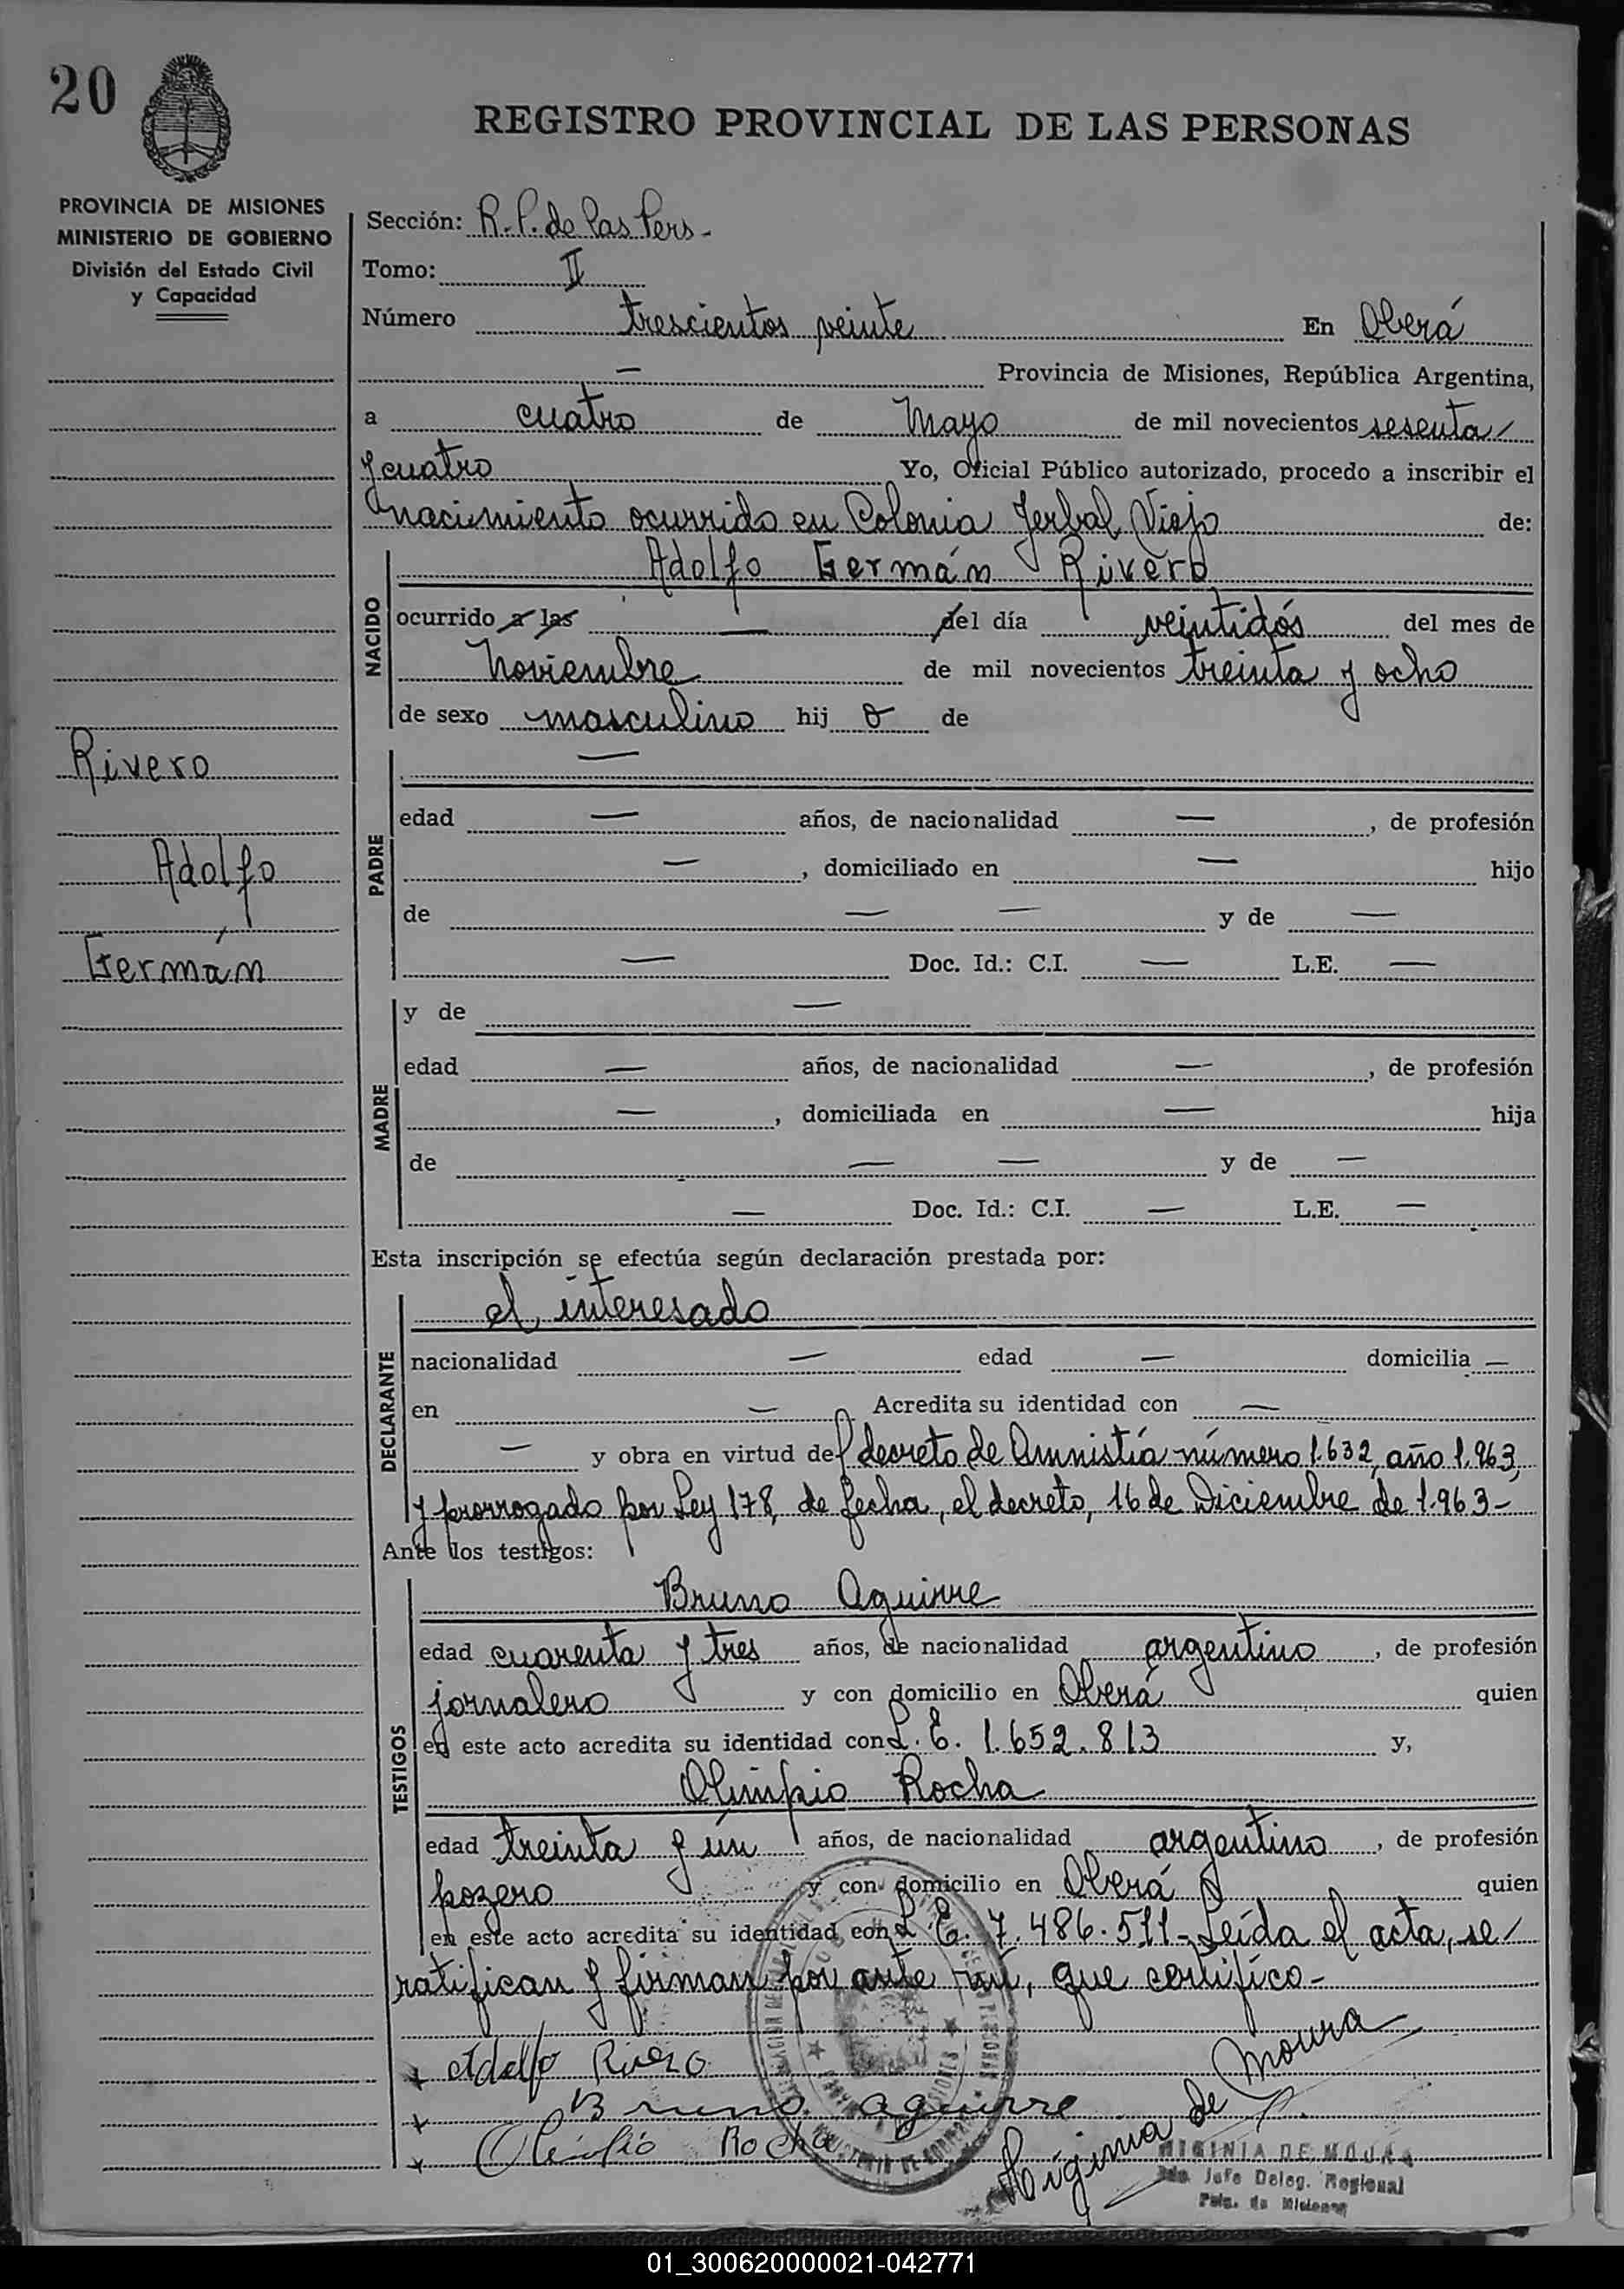 20
REGISTRO PROVINCIAL DE LAS PERSONAS
PROVINCIA DE MISIONES
MINISTERIO DE GOBIERNO
División del Estado Civil
y Capacidad
Sección: R.P. de las Pers -
Tomo: II
Número trescientos veinte En Oberá
— Provincia de Misiones, República Argentina,
a cuatro de Mayo de mil novecientos sesenta
y cuatro Yo, Oficial Público autorizado, procedo a inscribir el
nacimiento ocurrido en Colonia Yerbal Viejo de:
Adolfo Germán Rivero
NACIDO
ocurrido a las — del día veintidós del mes de
Noviembre de mil novecientos treinta y ocho
de sexo masculino hij o de
Rivero
Adolfo
Germán
PADRE
—
edad — años, de nacionalidad — , de profesión
— , domiciliado en — hijo
de — — y de —
— Doc. Id.: C.I. — L.E. —
MADRE
y de —
edad — años, de nacionalidad — , de profesión
— , domiciliada en — hija
de — — y de —
— Doc. Id.: C.I. — L.E. —
Esta inscripción se efectúa según declaración prestada por:
DECLARANTE
el interesado
nacionalidad — edad — domicilia —
en — Acredita su identidad con —
— y obra en virtud del decreto de Amnistía número 1.632, año 1.963,
y prorrogado por Ley 178, de fecha, el decreto, 16 de Diciembre de 1.963 -
Ante los testigos:
TESTIGOS
Bruno Aguirre
edad cuarenta y tres años, de nacionalidad argentino , de profesión
jornalero y con domicilio en Oberá quien
en este acto acredita su identidad con L.E. 1.652.813 y,
Olimpio Rocha
edad treinta y ún años, de nacionalidad argentino , de profesión
pozero y con domicilio en Oberá quien
en este acto acredita su identidad con L.E. 7.486.511 - Leída el acta, se
ratifican y firman por ante mí, que certifico -
Adolfo Rivero
Bruno aguirre
Olimpio Rocha
Higinia de Moura
HIGINIA DE MOURA
Jefe Deleg. Regional
Pcia. de Misiones
01_300620000021-042771